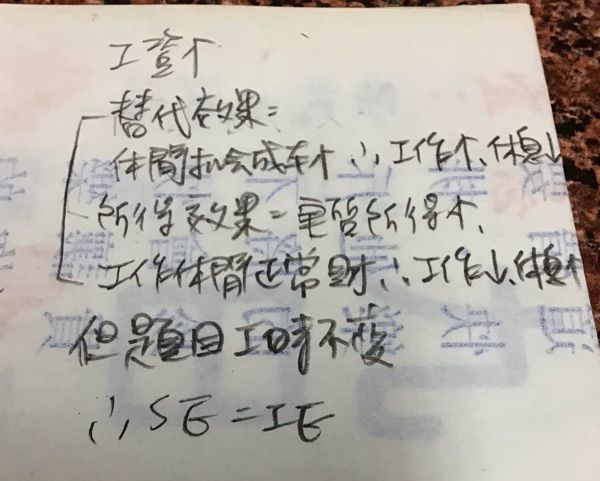 工資↑
替代效果：
休閒机会成本↑ ∴工作↑、休息↓
所得效果：實質所得↑、
工作休閒正常財∴工作↓、休息↑
但題目工時不變
∴SE=IE